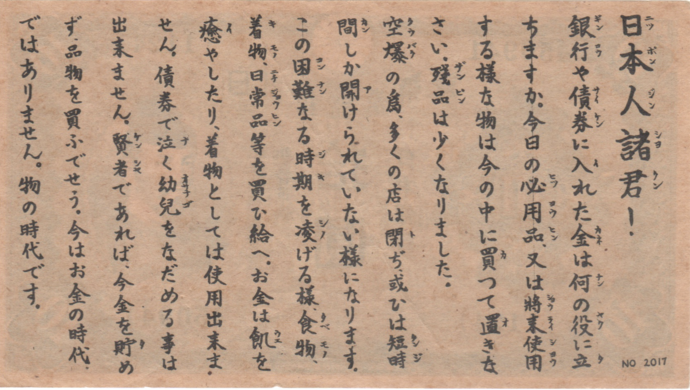 日本人諸君!
銀行や債券に入れた金は何の役に立
ちますか。今日の必用品、又は將来使用
する様な物は今の中に買つて置きな
さい。殘品は少くなりました。
空爆の爲、多くの店は閉ぢ、或ひは短時
間しか開けられていない様になります。
この困難なる時期を凌げる様、食物、
着物日常品等を買ひ給へ。お金は飢を
癒やしたり、着物としては使用出来ま
せん。債券で泣く幼兒をなだめる事は
出来ません。賢者であれば、今金を貯め
ず、品物を買ふでせう。今はお金の時代、
ではありません。物の時代です。
NO 2017